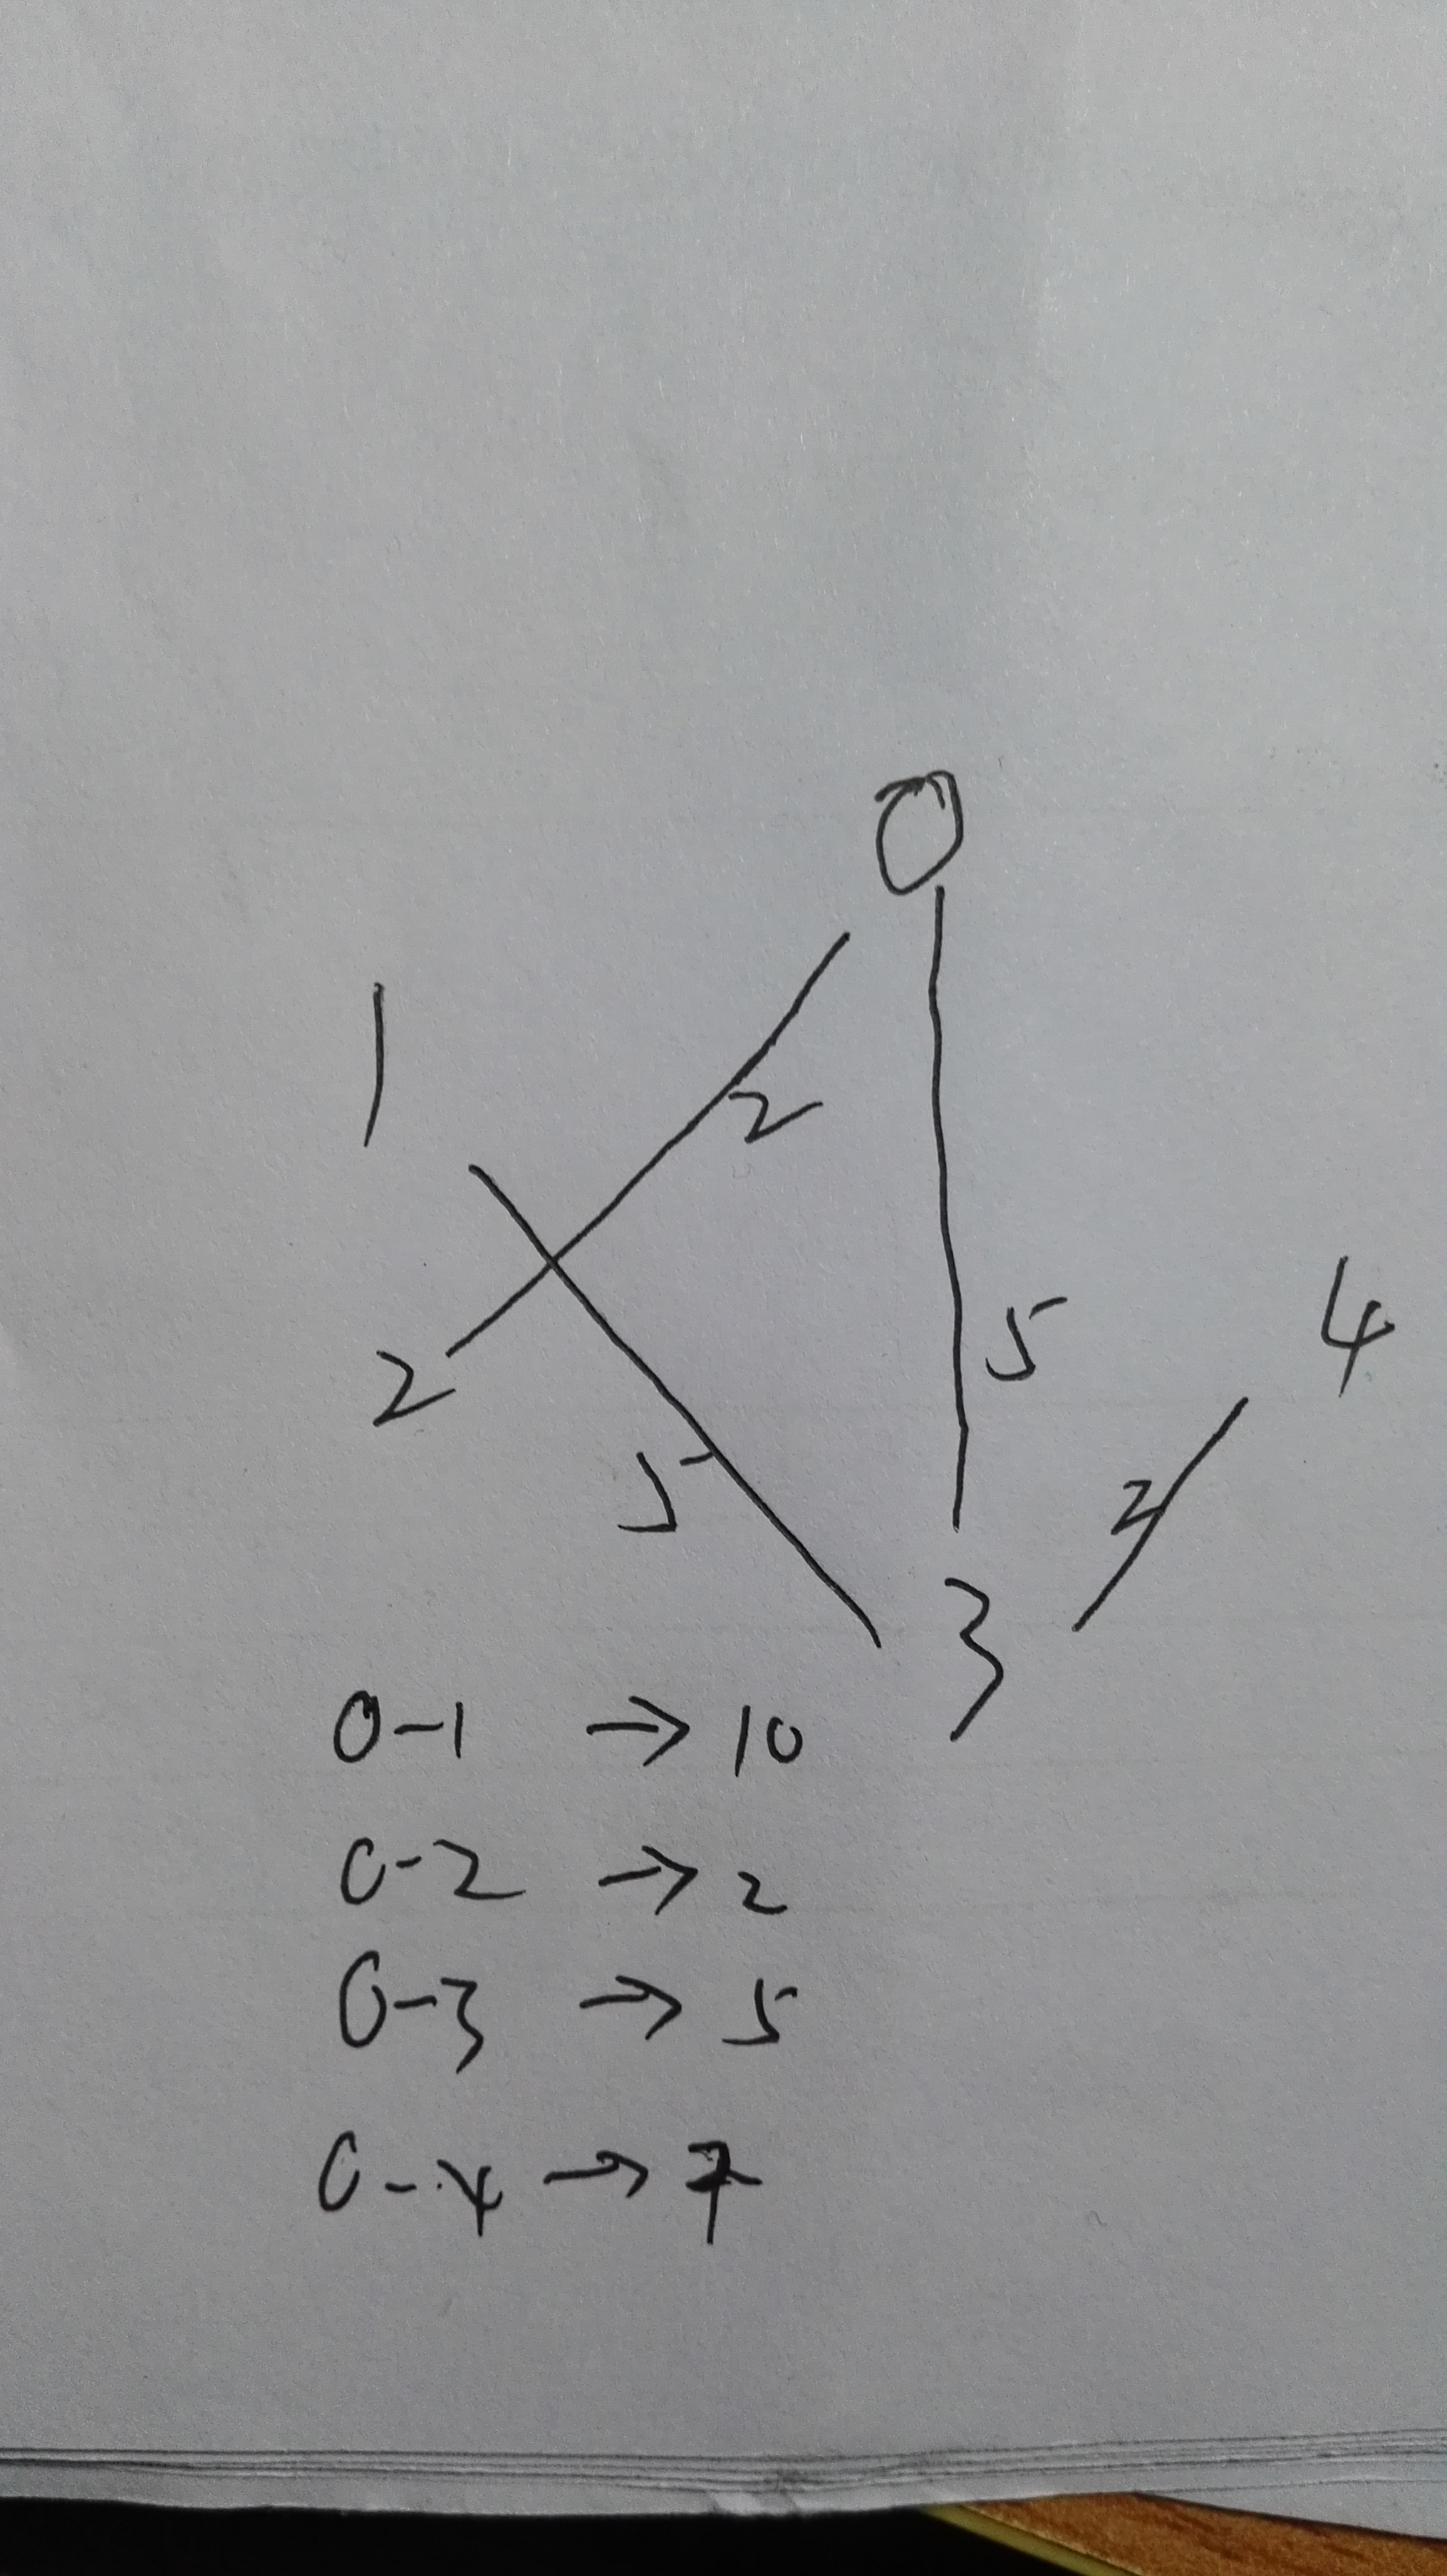 0
1
2
5
4
2
5
2
3
0-1 → 10
0-2 → 2
0-3 → 5
0-4 → 7